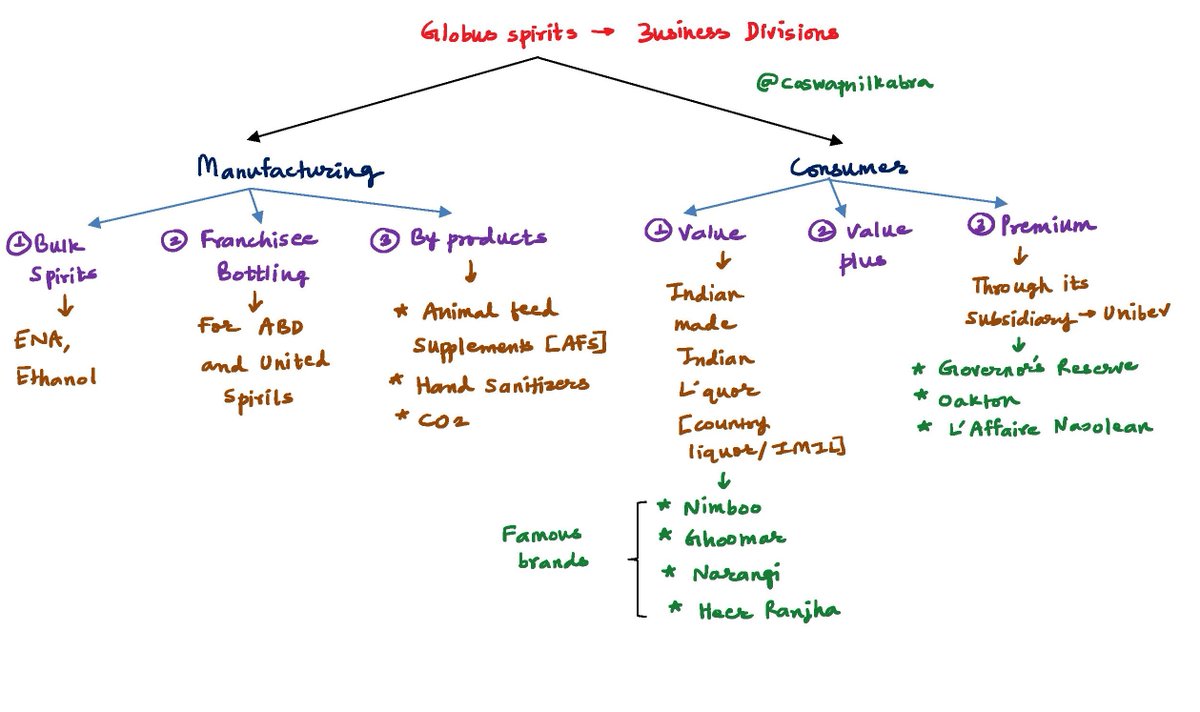 Globus spirits → Business Divisions
@caswapnilkabra
Manufacturing
Consumer
① Bulk
Spirits
ENA,
Ethanol
② Franchisee
Bottling
For ABD
and United
Spirils
③ By products
* Animal feed
Supplements [AFS]
* Hand Sanitizers
* CO2
① Value
Indian
made
Indian
Liquor
[country
liquor/IMIL]
* Nimboo
* Ghoomar
* Narangi
* Heer Ranjha
Famous
brands
② Value
plus
③ Premium
Through its
Subsidiary → Unibev
* Governor's Reserve
* Oakton
* L'Affaire Nasolean